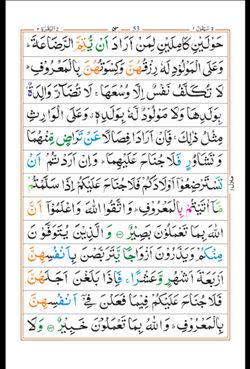 حَوْلَيْنِ كَامِلَيْنِ لِمَنْ اَرَادَ اَنْ يُّتِمَّ الرَّضَاعَةَ ؕ
وَعَلَى الْمَوْلُوْدِ لَهٗ رِزْقُهُنَّ وَكِسْوَتُهُنَّ بِالْمَعْرُوْفِ ؕ
لَا تُكَلَّفُ نَفْسٌ اِلَّا وُسْعَهَا ۚ لَا تُضَآرَّ وَالِدَةٌۢ
بِوَلَدِهَا وَلَا مَوْلُوْدٌ لَّهٗ بِوَلَدِهٖ ۗ وَعَلَى الْوَارِثِ
مِثْلُ ذٰلِكَ ۚ فَاِنْ اَرَادَا فِصَالًا عَنْ تَرَاضٍ مِّنْهُمَا
وَتَشَاوُرٍ فَلَا جُنَاحَ عَلَيْهِمَا ؕ وَاِنْ اَرَدْتُّمْ اَنْ
تَسْتَرْضِعُوْٓا اَوْلَادَكُمْ فَلَا جُنَاحَ عَلَيْكُمْ اِذَا سَلَّمْتُمْ
مَّآ اٰتَيْتُمْ بِالْمَعْرُوْفِ ؕ وَاتَّقُوا اللّٰهَ وَاعْلَمُوْٓا اَنَّ
اللّٰهَ بِمَا تَعْمَلُوْنَ بَصِيْرٌ وَالَّذِيْنَ يُتَوَفَّوْنَ
مِنْكُمْ وَيَذَرُوْنَ اَزْوَاجًا يَّتَرَبَّصْنَ بِاَنْفُسِهِنَّ
اَرْبَعَةَ اَشْهُرٍ وَّعَشْرًا ۚ فَاِذَا بَلَغْنَ اَجَلَهُنَّ
فَلَا جُنَاحَ عَلَيْكُمْ فِيْمَا فَعَلْنَ فِيْٓ اَنْفُسِهِنَّ
بِالْمَعْرُوْفِ ؕ وَاللّٰهُ بِمَا تَعْمَلُوْنَ خَبِيْرٌ وَلَا